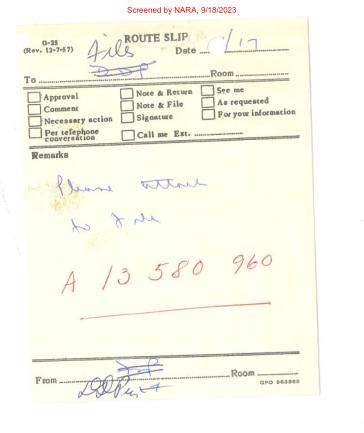 Screened by NARA, 9/18/2023
G-25
(Rev. 12-7-57)
ROUTE SLIP
File
Date ... /17
To ... Room ...
Approval
Comment
Necessary action
Per telephone conversation
Note & Return
Note & File
Signature
Call me Ext. ...
See me
As requested
For your information
Remarks
Please attach
to file
A 13 580 960
From ... Room ...
GPO